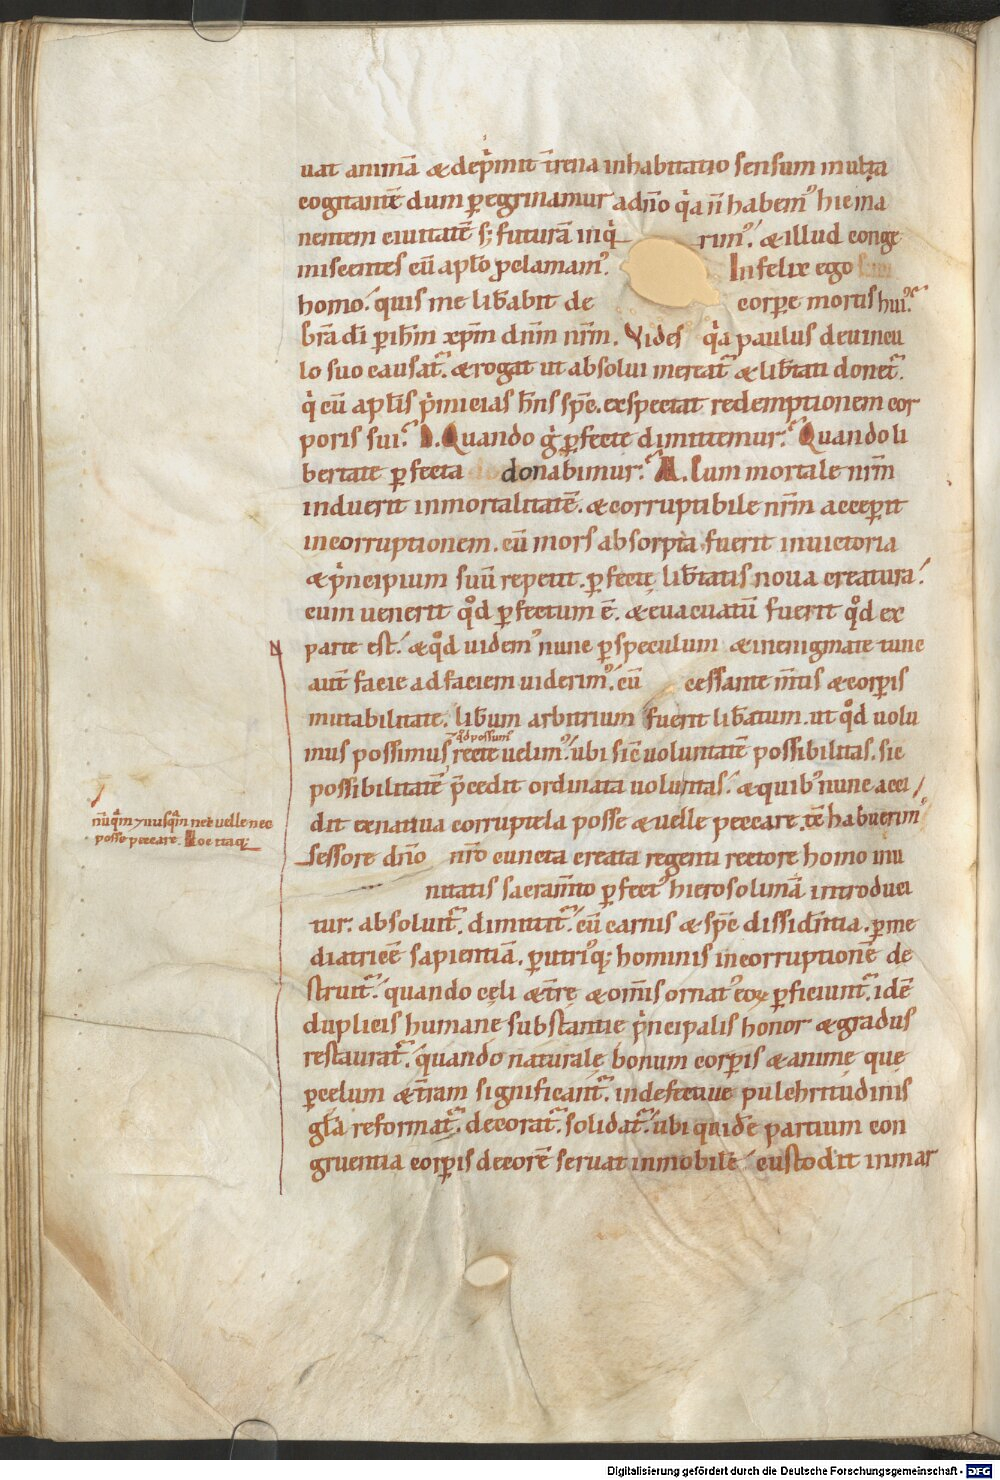 uat animā &dep̄mit t̄rena inhabitatio sensum multa
cogitantē dum ꝑegrinamur a dn̄o q̄a n̄ habemꝰ hic ma
nentem ciuitatē s; futurā inq̄rimꝰ. & illud conge
miscentes cū apl̄o ꝓclamamꝰ. Infelix ego
homo. quis me lib̄abit de corꝑe mortis huiꝰ.
gr̄a dī ꝑ ih̄m xp̄m dn̄m nr̄m. Vides q̄a paulus de uincu
lo suo causat᷑. & rogat ut absolui mereat᷑ & lib̄tati donet᷑.
q̄ cū apl̄is p̄micias h̄ns sp̄c. exspectat redemptionem cor
poris sui. D. Quando g̊ ꝑfecte dimittemur. Quando li
bertate ꝑfecta donabimur. M. Cum mortale nr̄m
induerit inmortalitatē. & corruptibile nr̄m acceꝑit
incorruptionem. cū mors absorpta fuerit in uictoria
& p̄ncipium suū repetit. ꝑfecte lib̄tatis noua creatura.
cum uenerit qd̄ ꝑfectum ē. & euacuatū fuerit qd̄ ex
parte est. & qd̄ uidemꝰ nunc ꝑ speculum & in enigmate tunc
aut̄ facie ad faciem uiderimꝰ. cū cessante m̄tis & corꝑis
mutabilitate. lib̄um arbitrium fuerit lib̄atum. ut qd̄ uolu
mus possimus, qd̄ possumꝰ recte uelimꝰ. ubi sic uoluntatē possibilitas. sic
possibilitatē p̄cedit ordinata uoluntas. & quibꝰ nunc acci
dit ex natiua corruptela posse & uelle peccare. tc̄ habuerim
nūq̄m ⁊ nusq̄m nec uelle nec
posse peccare. Hoc itaq;
sessore dn̄o nr̄o cuncta creata regenti rectore homo inu
nitatis sacram̄to ꝑfectꝰ hierosolimā introduci
tur. absoluit᷑. dimittit᷑. cū carnis & sp̄c dissidn̄tia. ꝑ me
diatricē sapientiā. ꝑ utriꝰq; hominis incorruptionē de
struit᷑. quando cęli & t̄re & om̄is ornatꝰ eoꝝ ꝑficiunt᷑. idē
duplicis humanę substantię p̄ncipalis honor & gradus
restaurat᷑. quando naturale bonum corꝑis & animę que
ꝑ cęlum & t̄ram significant᷑. indefectiue pulchritudinis
gl̄a reformat᷑. decorat᷑. solidat᷑. ubi quidē partium con
gruentia corꝑis decorē seruat inmobilē. custodit inmar
Digitalisierung gefördert durch die Deutsche Forschungsgemeinschaft - DFG